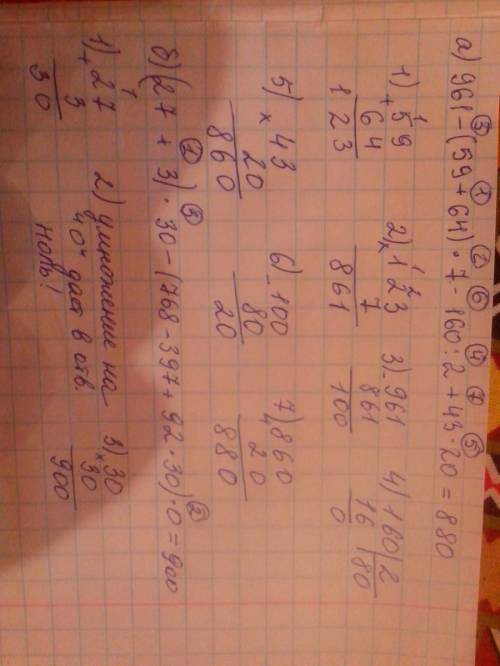 ③ ① ② ⑥ ④ ⑦ ⑤
а) 961 – (59 + 64) · 7 – 160 : 2 + 43 · 20 = 880
1) + 59 2) × 123 3) – 961 4) 160 | 2
64 7 861 16 | 80
123 861 100 0
5) × 43 6) – 100 7) + 860
20 80 20
860 20 880
① ③ ②
б) (27 + 3) · 30 – (768 – 397 + 92 · 30) · 0 = 900
1) + 27 2) умножение на 3) × 30
3 "0" даёт в отв. 30
30 ноль! 900